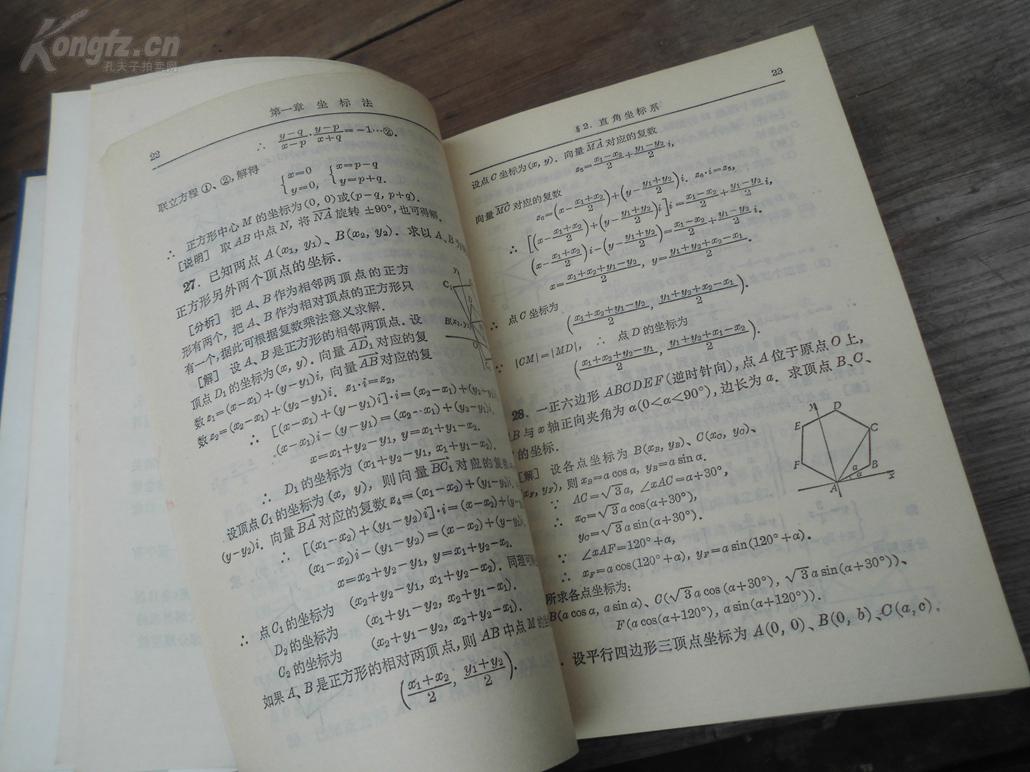 Kongfz.cn
孔夫子拍卖网
22
第一章 坐标法
∴ (y−q)/(x−p)·(y−p)/(x+q)=−1…②.
联立方程①、②,解得
{x=0 y=0, {x=p−q y=p+q.
∴ 正方形中心 M 的坐标为(0, 0)或(p−q, p+q).
[说明] 取 AB 中点 N, 将 NA 旋转 ±90°,也可得解.
27. 已知两点 A(x₁, y₁)、B(x₂, y₂). 求以 A、B
正方形另外两个顶点的坐标.
[分析] 把 A、B 作为相邻两顶点的正方
形有两个,把 A、B 作为相对顶点的正方形只
有一个,据此可根据复数乘法意义求解.
[解] 设 A、B 是正方形的相邻两顶点. 设
顶点 D₁ 的坐标为(x, y). 向量 AD₁ 对应的复
数 z₁=(x−x₁)+(y−y₁)i, 向量 AB 对应的复
数 z₂=(x₂−x₁)+(y₂−y₁)i. z₁·i=z₂,
∴ [(x−x₁)+(y−y₁)i]·i=(x₂−x₁)+(y₂
(x−x₁)i−(y−y₁)=(x₂−x₁)+(y₂
x=x₁+y₂−y₁, y=x₁+y₁−x₂.
∴ D₁ 的坐标为 (x₁+y₂−y₁, x₁+y₁−x₂).
设顶点 C₁ 的坐标为 (x, y), 则向量 BC₁ 对应的复
(y−y₂)i. 向量 BA 对应的复数 z₄=(x₁−x₂)+(y₁−y₂)i,
∴ [(x₁−x₂)+(y₁−y₂)i]·i=(x−x₂)+(y
(x₁−x₂)i−(y₁−y₂)=(x−x₂)+(y−y₂
x=x₂+y₂−y₁, y=x₁+y₂−x₂.
∴ 点 C₁ 的坐标为 (x₂+y₂−y₁, x₁+y₂−x₂). 同理可
D₂ 的坐标为 (x₁+y₁−y₂, x₂+y₁−x₁).
C₂ 的坐标为 (x₂+y₁−y₂, x₂+y₂−x₁).
如果 A、B 是正方形的相对两顶点,则 AB 中点 M 的坐
((x₁+x₂)/2, (y₁+y₂)/2).
y
C₁
23
§2. 直角坐标系
设点 C 坐标为(x, y). 向量 MA 对应的复数
z₅=(x₁−x₂)/2+(y₁−y₂)/2 i,
向量 MC 对应的复数
z₆=(x−(x₁+x₂)/2)+(y−(y₁+y₂)/2)i. z₆·i=z₅,
∴ [(x−(x₁+x₂)/2)+(y−(y₁+y₂)/2)i]i=(x₁−x₂)/2+(y₁−y₂)/2 i,
(x−(x₁+x₂)/2)i−(y−(y₁+y₂)/2)=(x₁−x₂)/2+(y₁−y₂)/2 i.
x=(x₁+x₂+y₁−y₂)/2, y=(y₁+y₂+x₂−x₁)/2.
∴ 点 C 坐标为
((x₁+x₂+y₁−y₂)/2, (y₁+y₂+x₂−x₁)/2).
∵ |CM|=|MD|, ∴ 点 D 的坐标为
((x₁+x₂+y₂−y₁)/2, (y₁+y₂+x₁−x₂)/2).
28. 一正六边形 ABCDEF(逆时针向),点 A 位于原点 O 上,
B 与 x 轴正向夹角为 α(0<α<90°),边长为 a. 求顶点 B、C、
的坐标.
[解] 设各点坐标为 B(x_B, y_B)、C(x_C, y_C)、
(x_F, y_F), 则 x_B=a cos α, y_B=a sin α.
∵ AC=√3 a, ∠xAC=α+30°,
∴ x_C=√3 a cos(α+30°),
y_C=√3 a sin(α+30°).
∵ ∠xAF=120°+α,
∴ x_F=a cos(120°+α), y_F=a sin(120°+α).
所求各点坐标为:
B(a cos α, a sin α)、C(√3 a cos(α+30°), √3 a sin(α+30°))、
F(a cos(α+120°), a sin(α+120°)).
. 设平行四边形三顶点坐标为 A(0, 0)、B(0, b)、C(a, c).
y D
E C
F B
α
A x